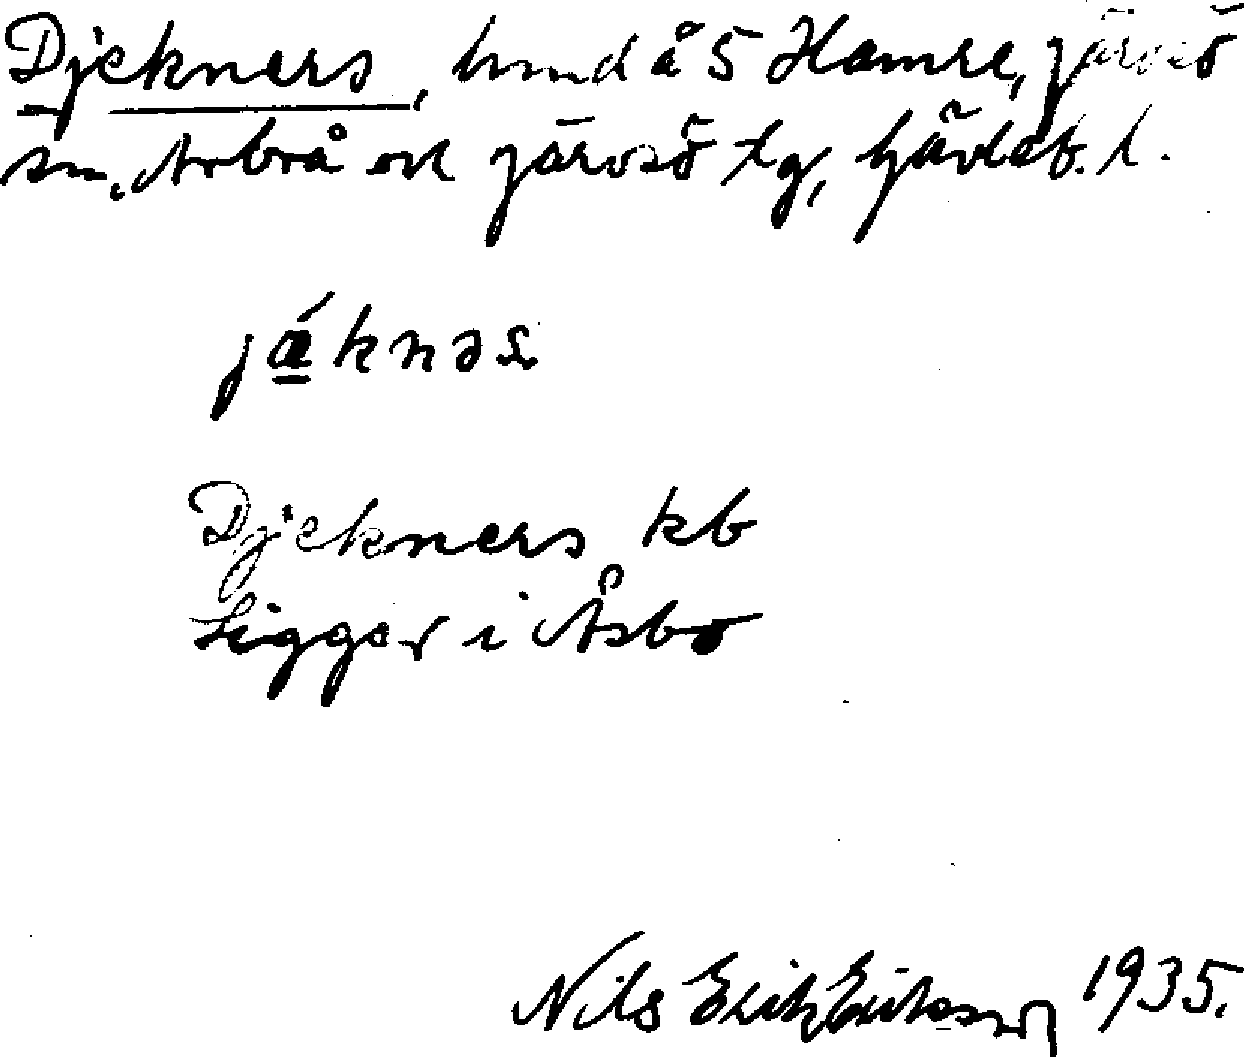 Djekners, hmd å 5 Hamre, Järvsö
sn. Arbrå och Järvsö tg, Gävleb. l.
jǽknəs
Djekners kb
Ligger i Åsbo
Nils Erik Eriksson 1935.